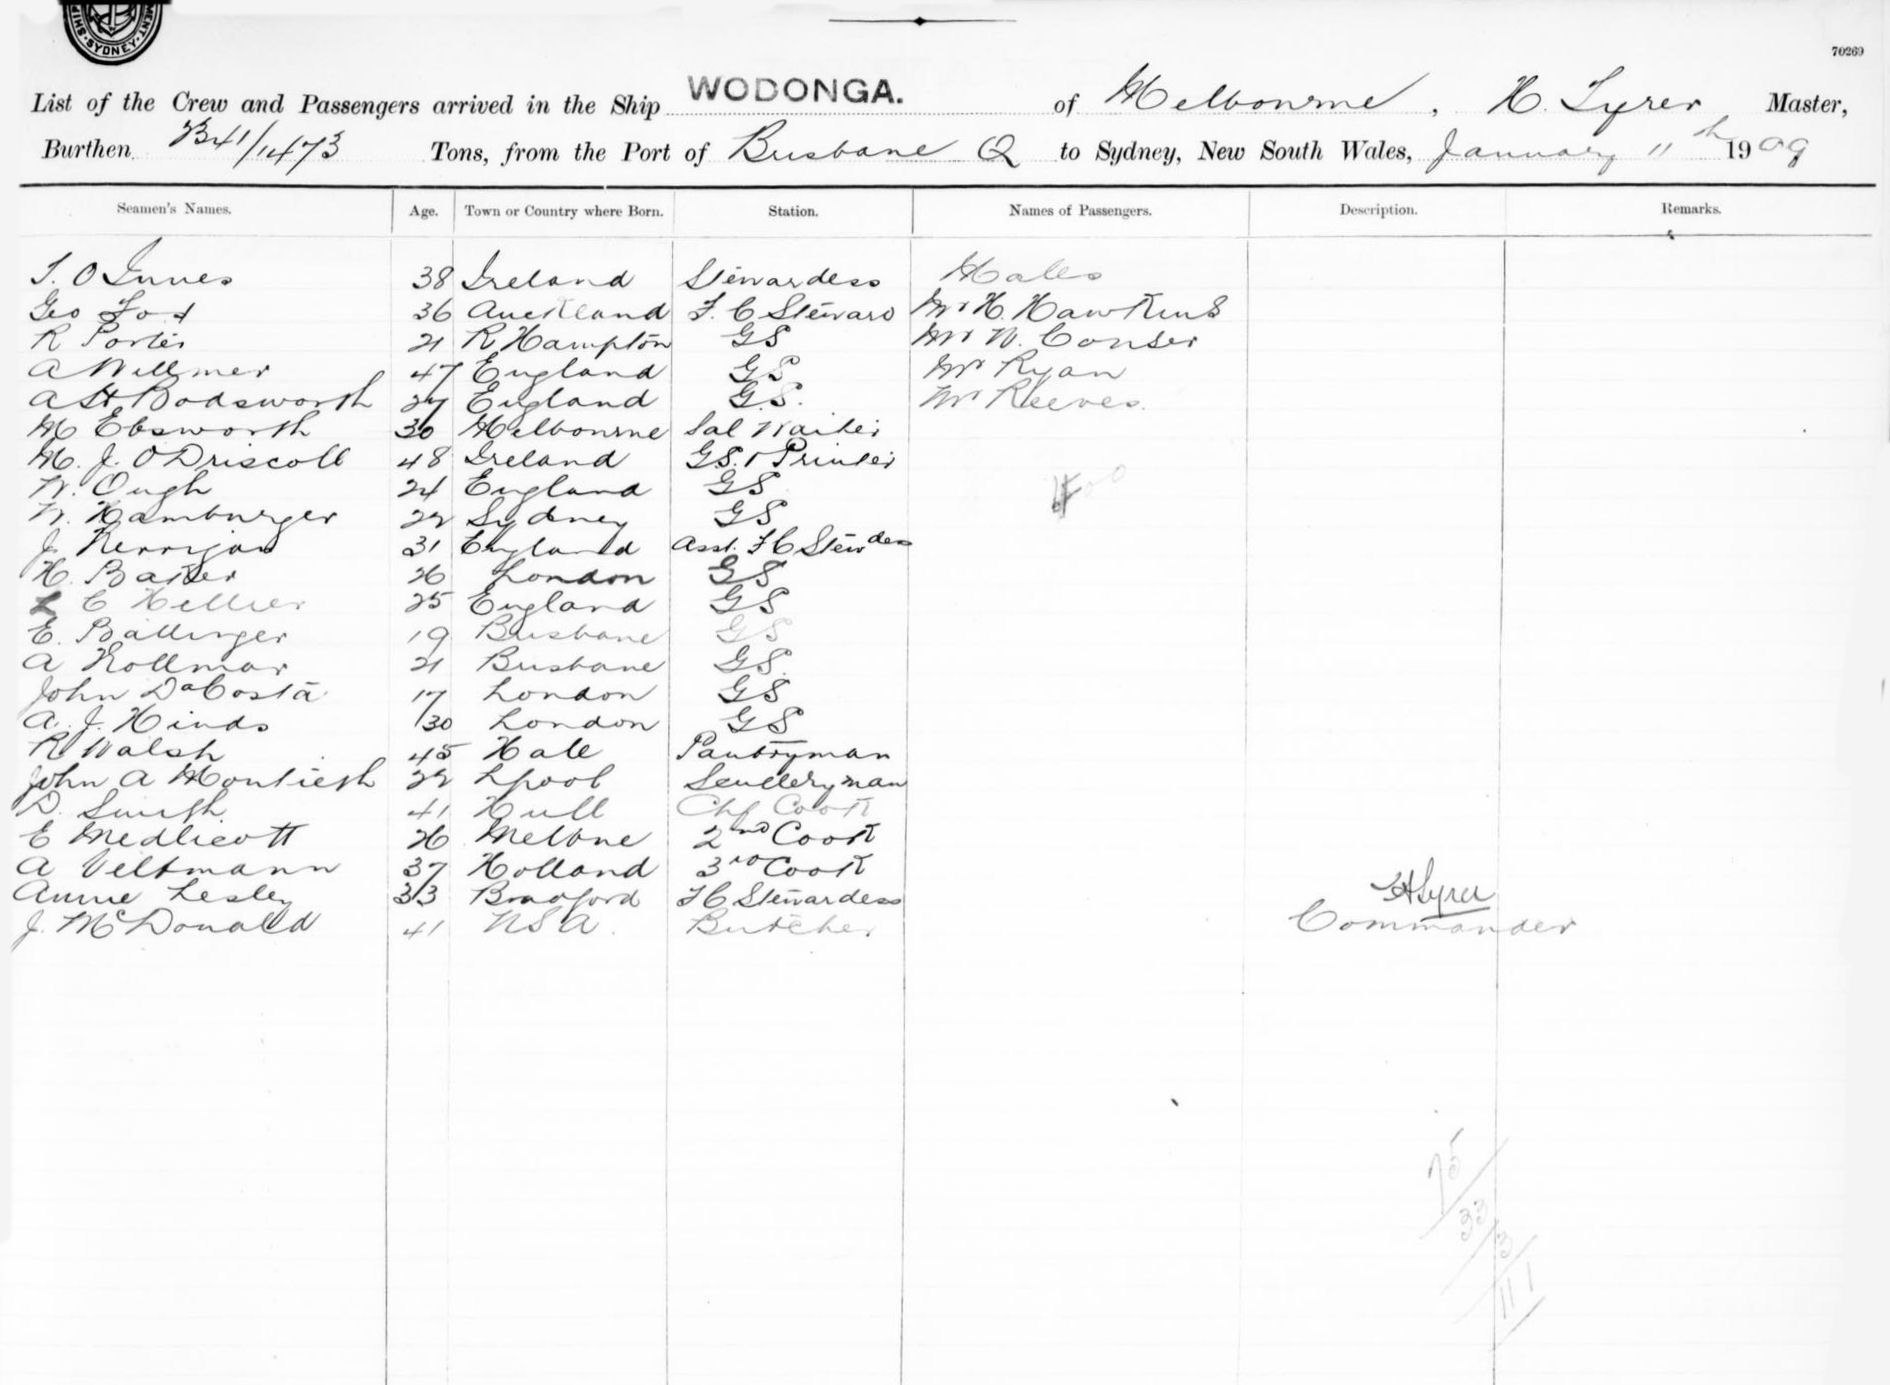 SYDNEY
70269
List of the Crew and Passengers arrived in the Ship WODONGA. of Melbourne, H. Lyrer Master,
Burthen 2341/1473 Tons, from the Port of Brisbane Q to Sydney, New South Wales, January 11th 1909
Seamen's Names. Age. Town or Country where Born. Station. Names of Passengers. Description. Remarks.
38 Ireland Stewardess Males
Geo Fox 36 Auckland F. C Steward Mr H. Hawkins
R Porter 21 R Hampton GS Mr W.
A Willmer 47 England GS Mr Ryan
A St Bodsworth 27 England G.S. Mr Reeves.
M Ebsworth 30 Melbourne Sal Waiter
M. J. O Driscoll 48 Ireland GS. & Printer
W. Ough 24 England GS
W. Hamburger 22 Sydney GS
J. Kerrigan 31 England Asst. F C Stewdess
H. Baker 26 London GS
C Hellier 25 England GS
E. Ballinger 19 Brisbane GS
A Kollmar 21 Brisbane GS.
John DaCosta 17 London GS
A. J. Hinds 30 London GS
R Walsh 45 Pantryman
John A Montieth 22 Lpool Sculleryman
D. Smith 41 Hull Chf Cook
E Medlicott 26 Melbne 2nd Cook
A Veltmann 37 Holland 3rd Cook
Annie Lesley 33 Bradford F C Stewardess
J. McDonald 41 Butcher
Commander
75
33
3
111